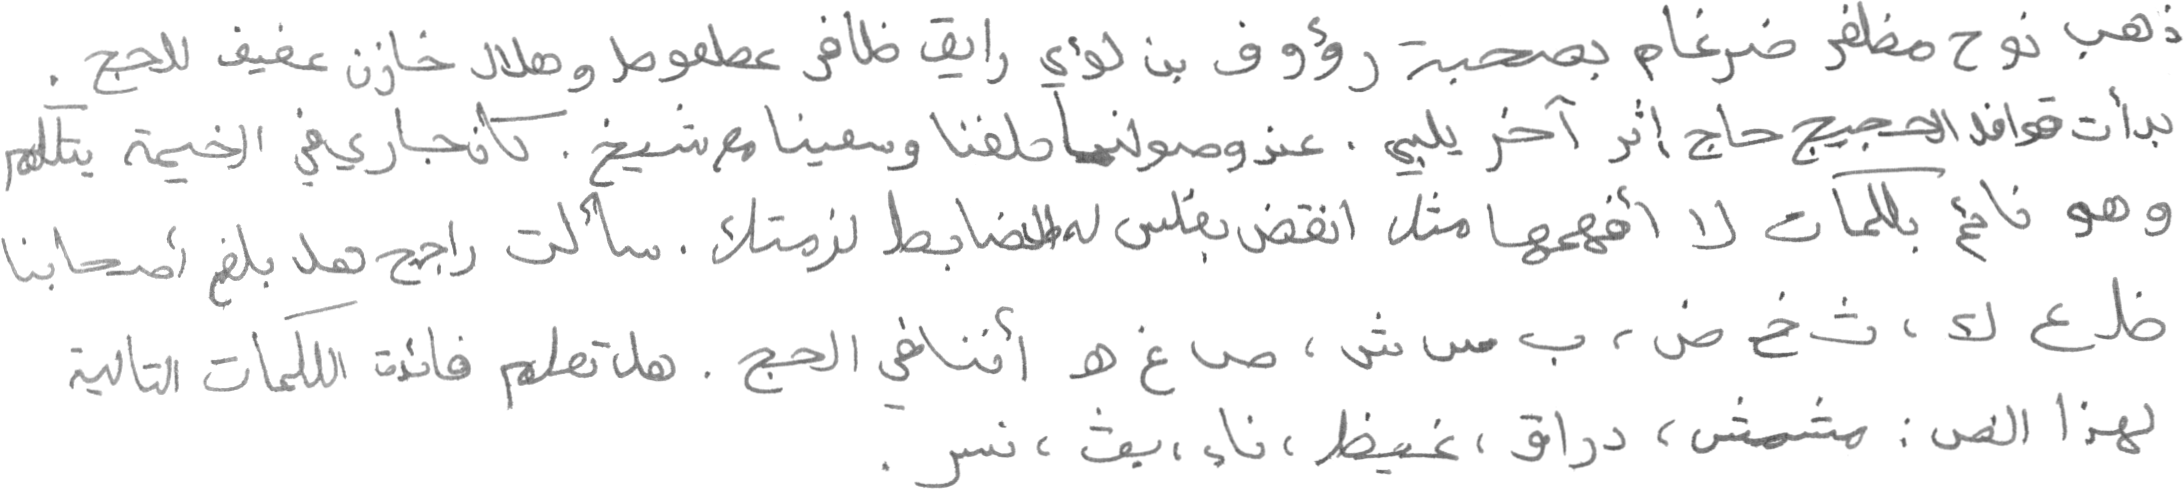 ذهب نوح مظفر ضرغام بصحبة رؤوف بن لؤي رايق ظافر عطعوط وهلال خازن عفيف للحج .
بدأت قوافل الحجيج حاج إثر آخر يلبي . عند وصولنا حلقنا وسعينا مع شيخ . كان جاري في الخيمة يتكلم
وهو نائم بكلمات لا أفهمها مثل انقض بغلس له الضابط لزمتك . سألت راجح هل بلغ أصحابنا
ظل ع ك ، ث خ ض ، ب س ش ، ص غ ه أننا في الحج . هل تعلم فائدة الكلمات التالية
لهذا النص : مشمش ، دراق ، غيظ ، ناء ، بث ، نسر .